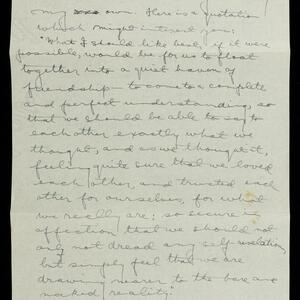 my own. Here is a quotation
which might interest you:
"What I should like best, if it were
possible, would be for us to float
together into a quiet haven of
friendship — to come to a complete
and perfect understanding, so
that we should be able to say to
each other exactly what we
thought, and as we thought it,
feeling quite sure that we loved
each other, and trusted each
other for ourselves, for what
we really are; so secure in
affection that we should not
only not dread any self-revelation,
but simply feel that we are
drawing nearer to the bare and
naked reality."